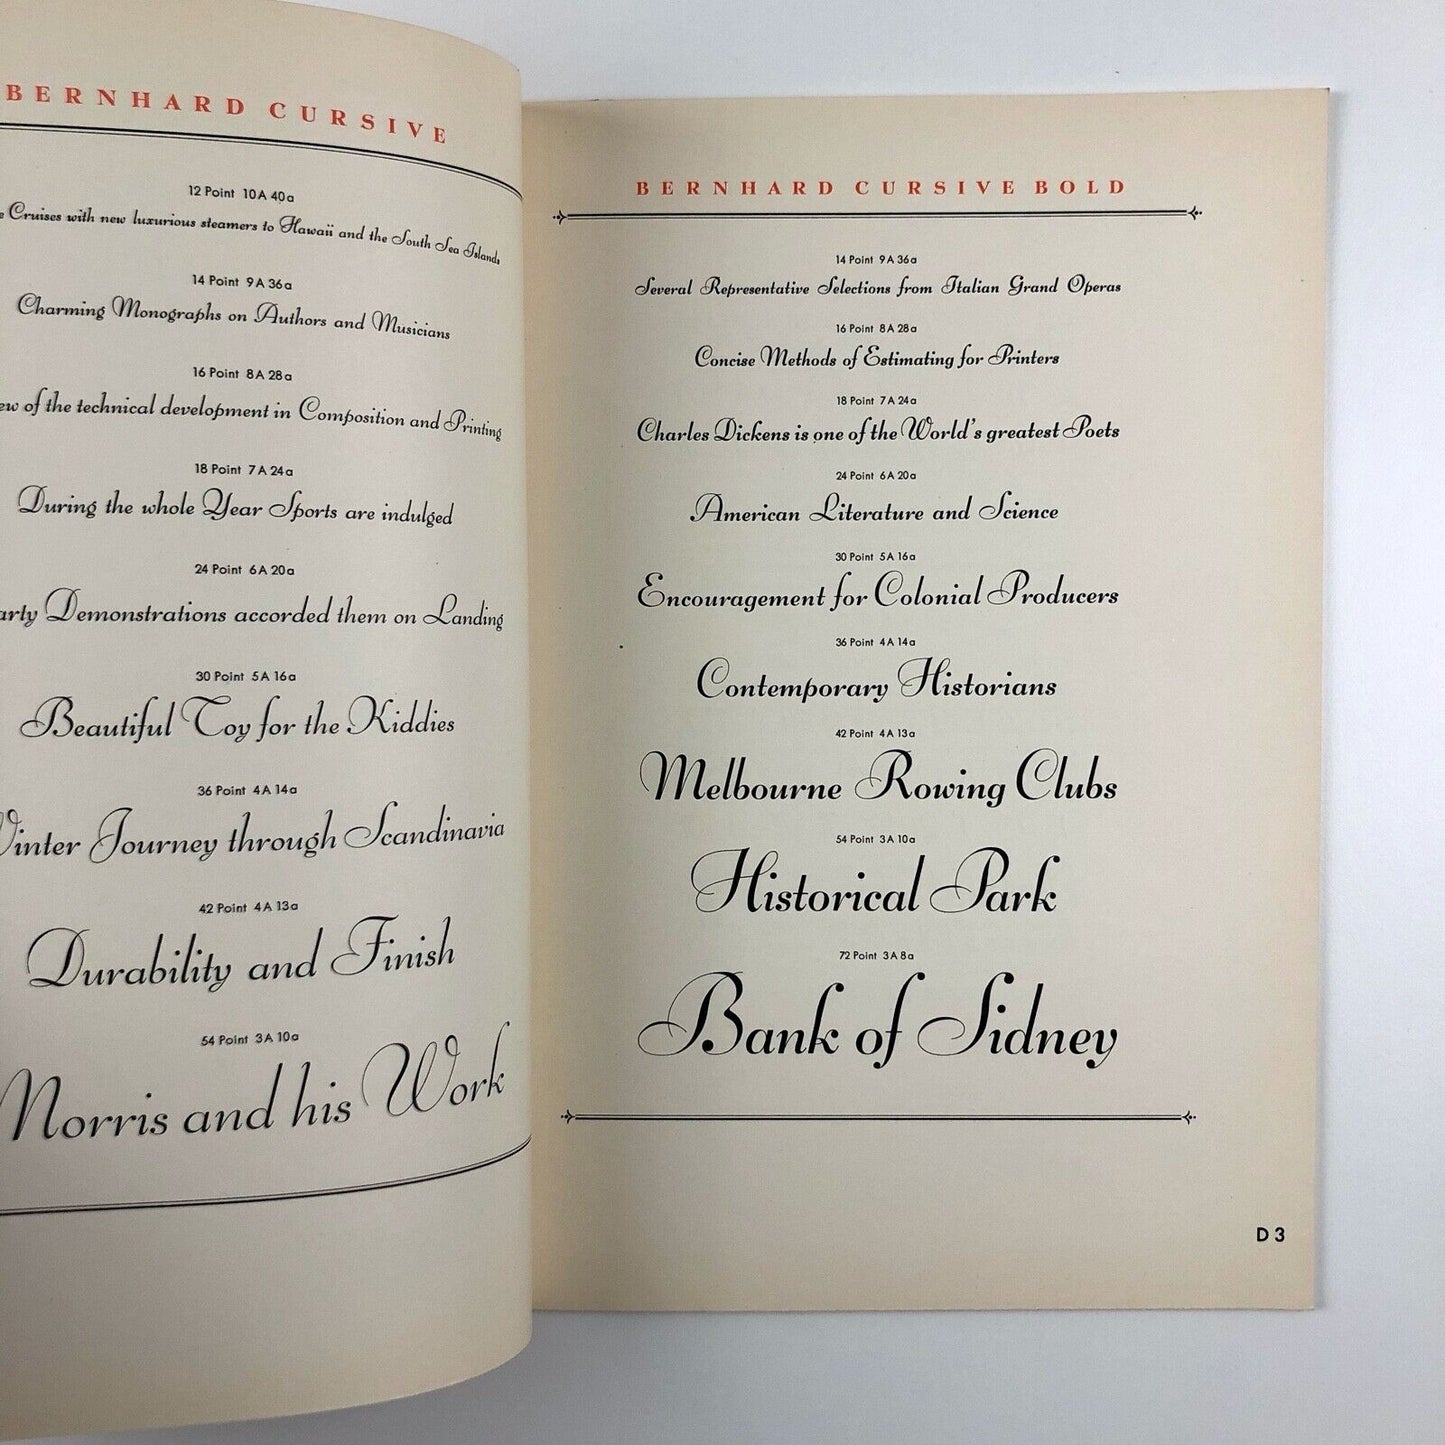 BERNHARD CURSIVE
12 Point 10A 40a
Cruises with new luxurious steamers to Hawaii and the South Sea Islands
14 Point 9A 36a
Charming Monographs on Authors and Musicians
16 Point 8A 28a
of the technical development in Composition and Printing
18 Point 7A 24a
During the whole Year Sports are indulged
24 Point 6A 20a
Demonstrations accorded them on Landing
30 Point 5A 16a
Beautiful Toy for the Kiddies
36 Point 4A 14a
Winter Journey through Scandinavia
42 Point 4A 13a
Durability and Finish
54 Point 3A 10a
Norris and his Work
BERNHARD CURSIVE BOLD
14 Point 9A 36a
Several Representative Selections from Italian Grand Operas
16 Point 8A 28a
Concise Methods of Estimating for Printers
18 Point 7A 24a
Charles Dickens is one of the World's greatest Poets
24 Point 6A 20a
American Literature and Science
30 Point 5A 16a
Encouragement for Colonial Producers
36 Point 4A 14a
Contemporary Historians
42 Point 4A 13a
Melbourne Rowing Clubs
54 Point 3A 10a
Historical Park
72 Point 3A 8a
Bank of Sidney
D 3